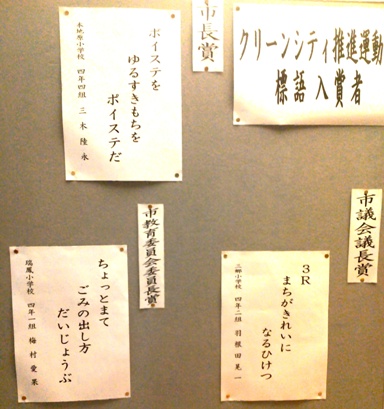 クリーンシティ推進運動
標語入賞者
市長賞
ポイステを
ゆるすきもちを
ポイステだ
本地原小学校 四年四組 三木陸永
市議会議長賞
3R
まちがきれいに
なるひけつ
三郷小学校 四年二組 羽根田晃一
市教育委員会委員長賞
ちょっとまて
ごみの出し方
だいじょうぶ
瑞鳳小学校 四年一組 梅村愛果